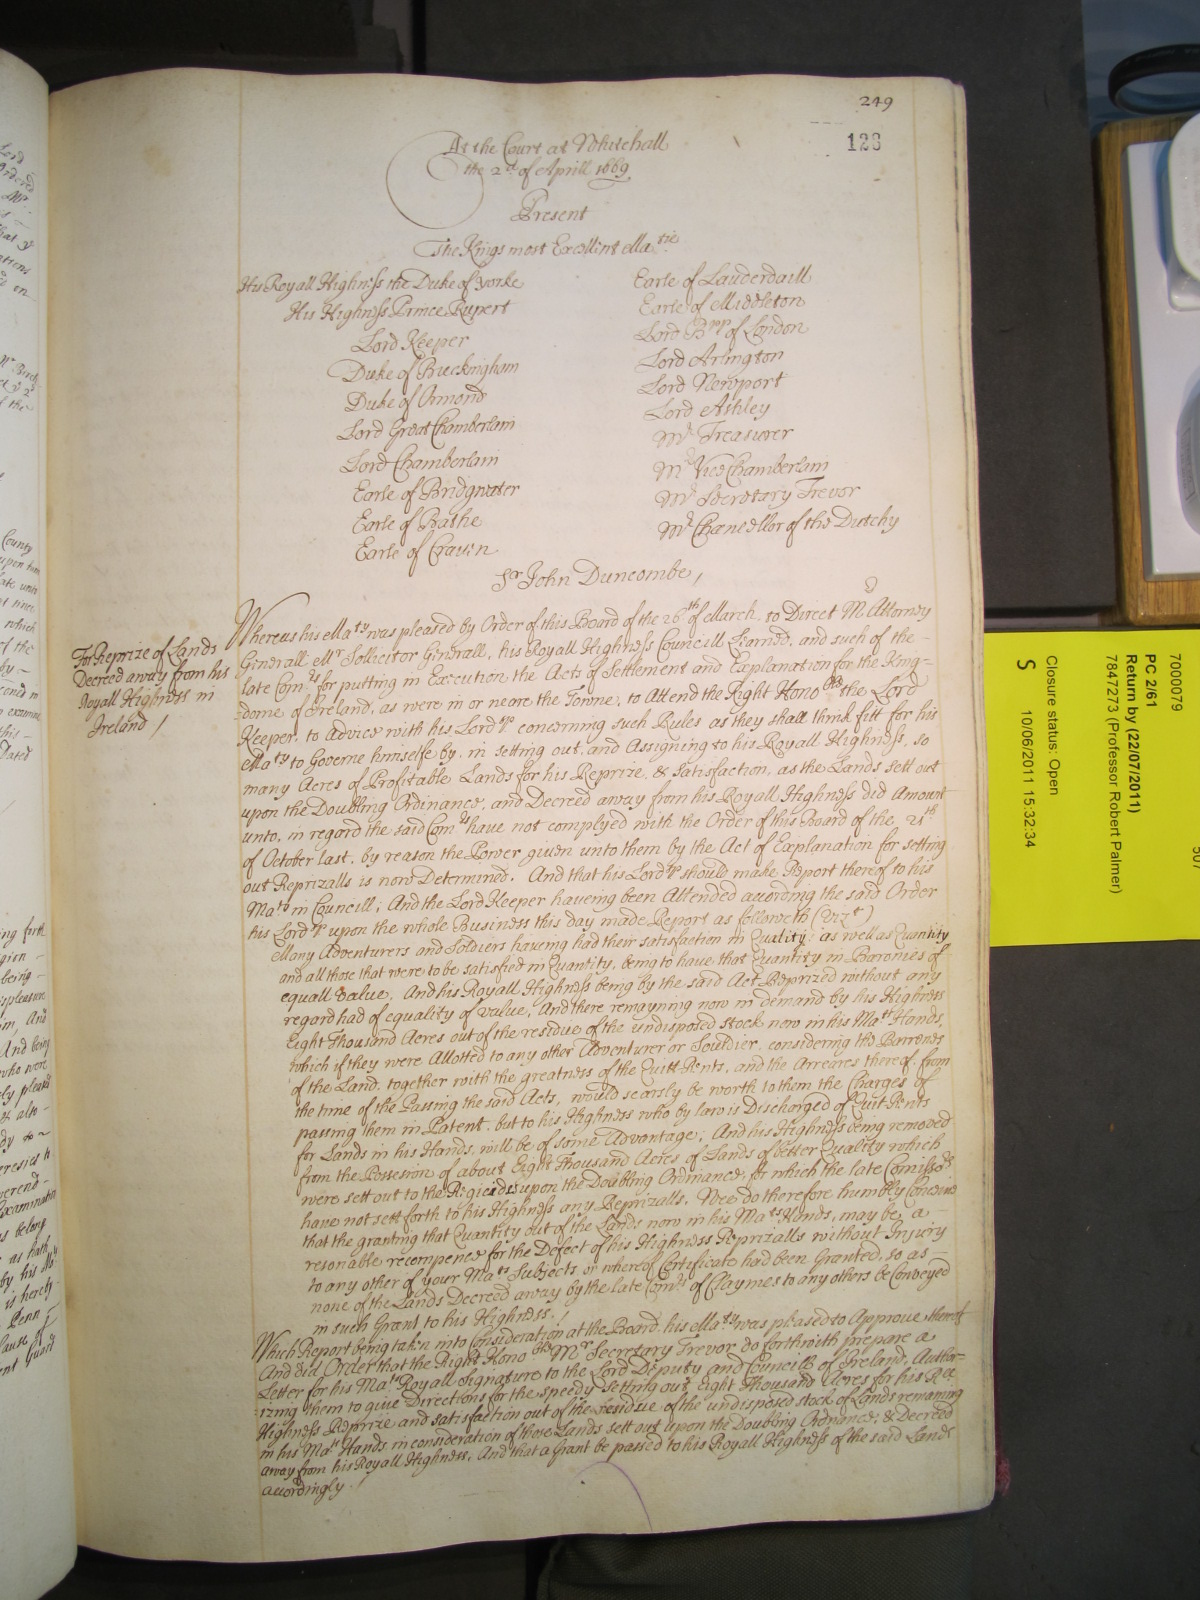 249
128
At the Court at Whitehall
the 2d of Aprill 1669
Present
The Kings most Excellent Matie
His Royall Highness the Duke of Yorke
His Highness Prince Rupert
Lord Keeper
Duke of Buckingham
Duke of Ormond
Lord Great Chamberlain
Lord Chamberlain
Earle of Bridgwater
Earle of Bathe
Earle of Craven
Earle of Lauderdaill
Earle of Middleton
Lord Bpp of London
Lord Arlington
Lord Newport
Lord Ashley
Mr Treasurer
Mr Vice Chamberlain
Mr Secretary Trevor
Mr Chancellor of the Dutchy
Sr John Duncombe,
For Reprize of Lands
Decreed away from his
Royall Highness in
Ireland /
Whereas his Maty was pleased by Order of this Board of the 26th of March, to Direct Mr Attorney
Generall, Mr Sollicitor Generall, his Royall Highness Councill Learned, and such of the
late Comrs for putting in Execution the Acts of Settlement and Explanation for the King-
dome of Ireland, as were in or neere the Towne, to Attend the Right Honoble the Lord
Keeper, to Advise with his Lordpp concerning such Rules as they shall think fitt for his
Maty to Governe himselfe by, in setting out, and Assigning to his Royall Highness, so
many Acres of Profitable Lands for his Reprize, & Satisfaction, as the Lands sett out
upon the Doubling Ordinance, and Decreed away from his Royall Highness did Amount
unto, in regard the said Comrs have not complyed with the Order of this Board of the 21th
of October last, by reason the Power given unto them by the Act of Explanation for setting
out Reprizalls is now Determined. And that his Lordpp should make Report thereof to his
Maty in Councill; And the Lord Keeper haveing been Attended according the said Order
his Lordpp upon the whole Business this day made Report as followeth (vizt)
Many Adventurers and Soldiers haveing had their satisfaction in Quality, as well as Quantity
and all those that were to be satisfied in Quantity, being to have that Quantity in Barronies of
equall value, And his Royall Highness being by the said Act Reprized without any
regard had of equality of value, And there remayning now in demand by his Highness
Eight Thousand Acres out of the residue of the undisposed stock now in his Mats Hands,
which if they were Allotted to any other Adventurer or Souldier, considering the Barrenes
of the Land, together with the greatness of the Quitt-Rents, and the Arreares thereof, from
the time of the Passing the said Acts, would scarsly be worth to them the Charges of
passing them in Patent, but to his Highness who by law is Discharged of Quit Rents
for Lands in his Hands, will be of some Advantage; And his Highness being removed
from the Possesion of about Eight Thousand Acres of Lands of better Quality which
were sett out to the Regicides upon the Doubling Ordinance, for which the late Comissrs
have not sett forth to his Highness any Reprizalls, Wee do therefore humbly Conceive
that the granting that Quantity out of the Lands now in his Mats Hands, may be a
resonable recompence for the Defect of his Highness Reprizalls without Injury
to any other of your Mats Subjects, or whereof Certificate had been Granted, so as
none of the Lands Decreed away by the late Comrs of Claymes to any others be Conveyed
in such Grant to his Highness.
Which Report being taken into Consideration at the Board, his Maty was pleased to Approve thereof
And did Order that the Right Honoble Mr Secretary Trevor do forthwith prepare a
Letter for his Mats Royall Signature to the Lord Deputy and Councill of Ireland, Author-
rizing them to give Directions for the speedy setting out, Eight Thousand Acres for his
Highness Reprize and satisfaction out of the residue of the undisposed stock of Lands remaining
in his Mats Hands in consideration of those Lands sett out upon the Doubling Ordinance, & Decreed
away from his Royall Highness, And that a Grant be passed to his Royall Highness of the said Lands
accordingly. /
7000079
PC 2/61
Return by (22/07/2011)
7847273 (Professor Robert Palmer)
Closure status: Open
S 10/06/2011 15:32:34